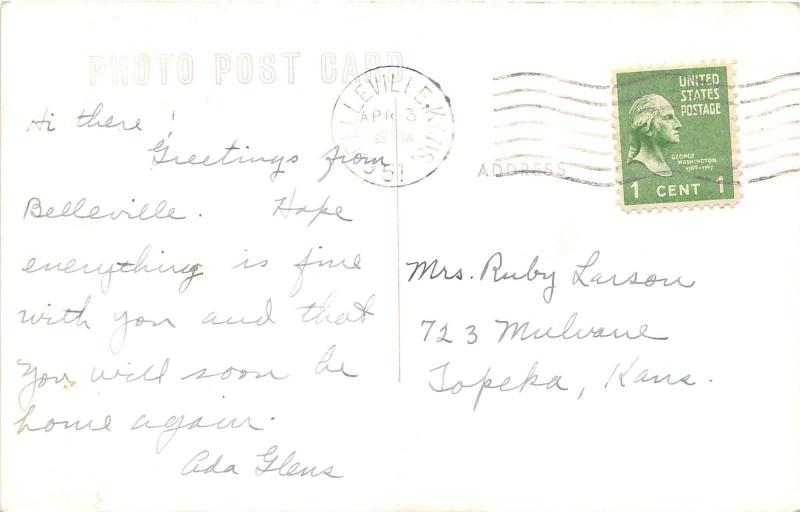 PHOTO POST CARD
BELLEVILLE, KANS.
APR 3
PM
1951
UNITED
STATES
POSTAGE
GEORGE
WASHINGTON
1 CENT 1
ADDRESS
Hi there!
Greetings from
Belleville. Hope
everything is fine
with you and that
you will soon be
home again.
Ada Glens
Mrs. Ruby Larson
723 Mulvane
Topeka, Kans.